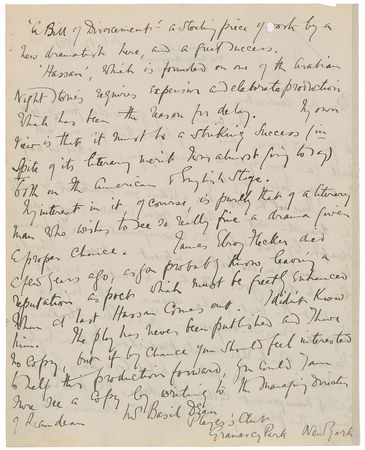 'A Bill of Divorcement' - a startling piece of work by a
new dramatist here, and a great success.
'Hassan', which is founded on one of the Arabian
Night stories requires expensive and elaborate production
which has been the reason for delay. My own
view is that it must be a striking success (in
spite of its literary merit I was almost going to say)
both on the American & English stage.
My interest in it, of course, is purely that of a literary
man who wishes to see so really fine a drama given
a proper chance. James Elroy Flecker died
a few years ago, as you probably know leaving a
reputation as poet which must be greatly enhanced
when at last Hassan comes out. I didn't know
him. The play has never been published and I have
no copy, but if by chance you should feel interested
to help this production forward, you could I am
sure see a copy by writing to the Managing Director
of Reandean Mr Basil Dean
Players's Club
Gramercy Park New York